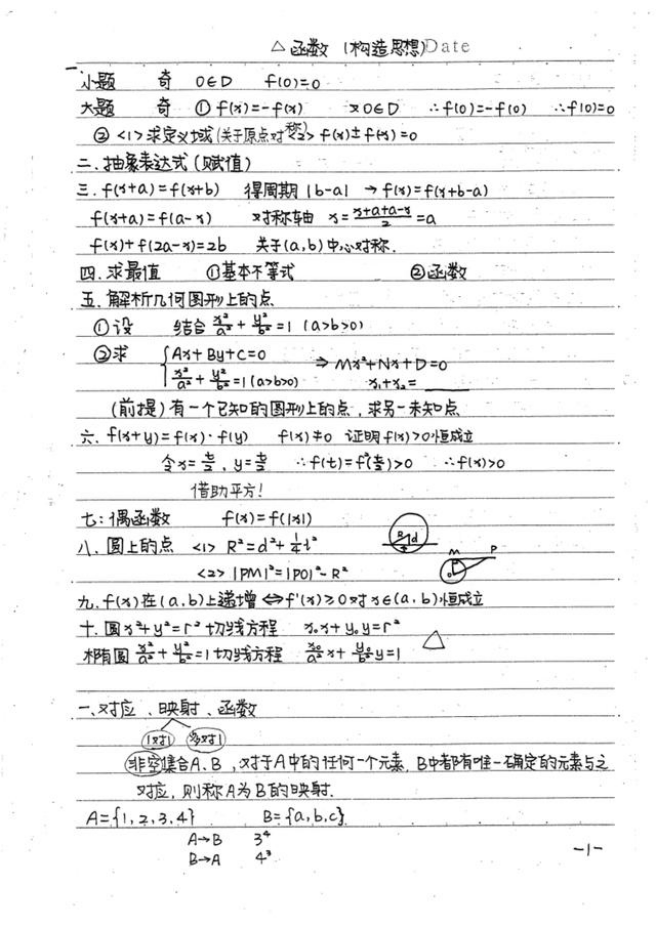 △ 函数 (构造思想) Date
一 小题 奇 0∈D f(0)=0
大题 奇 ① f(x)=-f(x) 又0∈D ∴f(0)=-f(0) ∴f(0)=0
② <1>求定义域(关于原点对称)<2> f(x)±f(x)=0
二. 抽象表达式(赋值)
三. f(x+a)=f(x+b) 得周期|b-a| → f(x)=f(x+b-a)
f(x+a)=f(a-x) 对称轴 x=(x+a+a-x)/2=a
f(x)+f(2a-x)=2b 关于(a,b)中心对称.
四. 求最值 ①基本不等式 ②函数
五. 解析几何图形上的点
①设 结合 x²/a²+y²/b²=1 (a>b>0)
②求 {Ax+By+C=0
x²/a²+y²/b²=1(a>b>0) ⇒ Mx²+Nx+D=0
x₁+x₂=____
(前提)有一个已知的图形上的点,求另一未知点
六. f(x+y)=f(x)·f(y) f(x)≠0 证明f(x)>0恒成立
令x=t/2, y=t/2 ∴f(t)=f²(t/2)>0 ∴f(x)>0
借助平方!
七: 偶函数 f(x)=f(|x|)
八. 圆上的点 <1> R²=d²+¼l² R d
<2> |PM|²=|PO|²-R² M P O
九. f(x)在(a,b)上递增⇔f'(x)≥0对x∈(a,b)恒成立
十. 圆x²+y²=r²切线方程 x₀x+y₀y=r²
椭圆 x²/a²+y²/b²=1切线方程 x₀/a² x+y₀/b² y=1 △
一、对应、映射、函数
1对1 多对1
非空集合A、B,对于A中的任何一个元素,B中都有唯一确定的元素与之
对应,则称A为B的映射.
A={1,2,3,4} B={a,b,c}
A→B 3⁴
B→A 4³
-1-